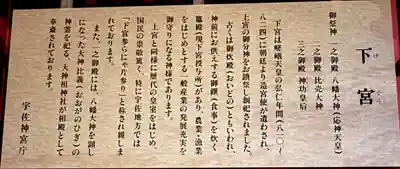 下宮
げくう
御祭神 一之御殿 八幡大神(応神天皇)
二之御殿 比売大神
三之御殿 神功皇后
下宮は嵯峨天皇の弘仁年間(八一〇~
八二四)に朝廷より造宮使が遣わされ、
上宮の御分神をお鎮祭し創祀されました。
古くは御炊殿(おいどの)ともいわれ、
神前にお供えする神饌(食事)を炊く
竈殿(現下宮授与所)があり、農業・漁業
をはじめとする一般産業の発展充実を
御守りになる御神様であります。
上宮と同様に歴代の皇室をはじめ、
国民の崇敬篤く、特に宇佐地方では
「下宮参らにゃ片参り」と称され親しま
れております。
また一之御殿には、八幡大神を顕し
になった大神比義(おおがのひぎ)の
神霊を祀る、大神祖神社が相殿として
奉斎されております。
宇佐神宮庁